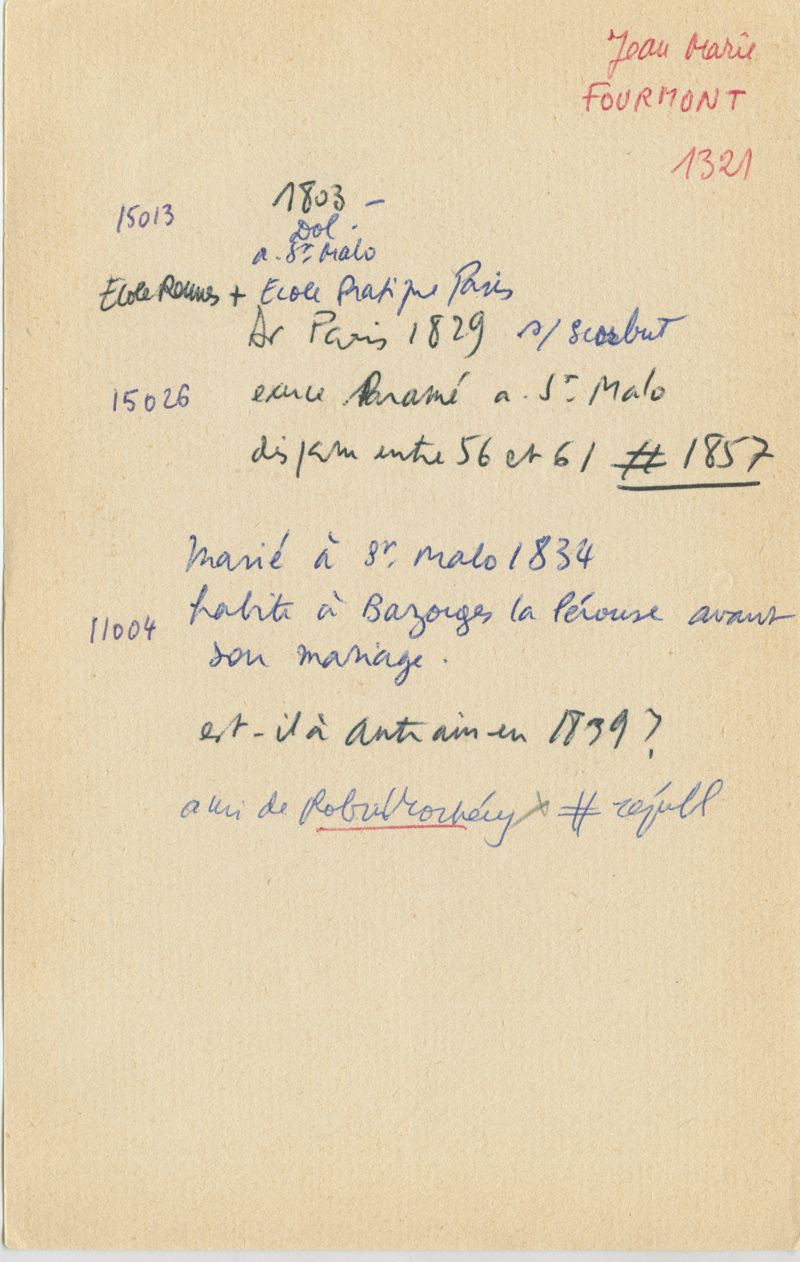 Jean Marie
FOURMONT
1321
15013 1803 -
Dol.
a. St Malo
Ecole Rennes + Ecole Pratique Paris
Dr Paris 1829 s/ scorbut
15026 exerce Paramé a. St Malo
dispam entre 56 et 61 # 1857
Marié à St. Malo 1834
11004 habite à Bazouges la Pérouse avant
son mariage.
est-il à Antrain en 1839 ?
ami de # républ